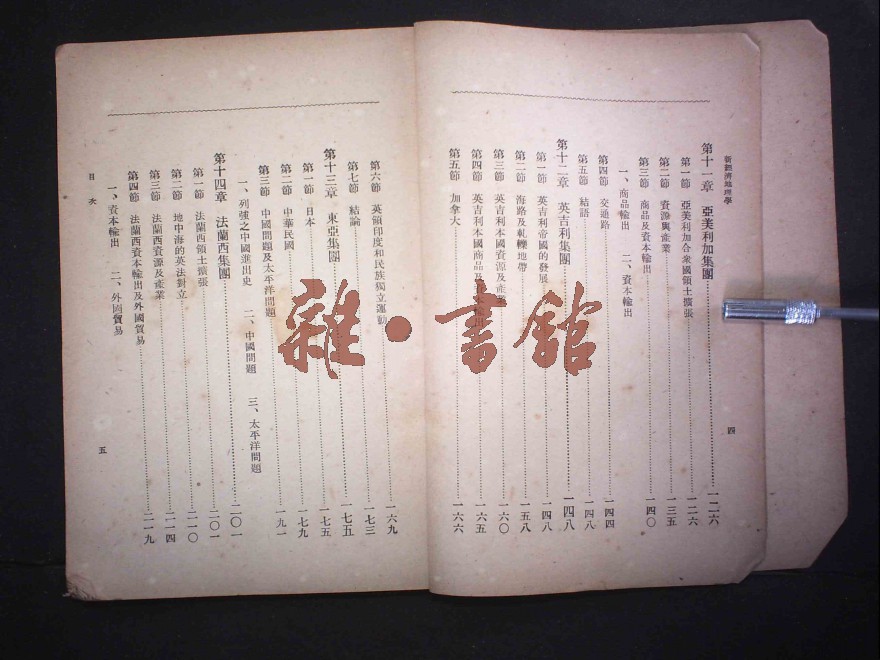 新經濟地理學
四
第十一章 亞美利加集團……一二六
第一節 亞美利加合衆國領土擴張……一二六
第二節 資源與產業……一三五
第三節 商品及資本輸出……一四〇
一、商品輸出 二、資本輸出
第四節 交通路……一四四
第五節 結語……一四八
第十二章 英吉利集團……一四八
第一節 英吉利帝國的發展……一四八
第二節 海路及軋轢地帶……一五八
第三節 英吉利本國資源及產業……一六〇
第四節 英吉利本國商品及資本輸出……一六五
第五節 加拿大……一六六
第六節 英領印度和民族獨立運動……一六九
第七節 結論……一七三
第十三章 東亞集團……一七五
第一節 日本……一七五
第二節 中華民國……一七九
第三節 中國問題及太平洋問題……一九一
一、列強之中國進出史 二、中國問題 三、太平洋問題
第十四章 法蘭西集團……二〇一
第一節 法蘭西領土擴張……二〇一
第二節 地中海的英法對立……二一〇
第三節 法蘭西資源及產業……二一四
第四節 法蘭西資本輸出及外國貿易……二一九
一、資本輸出 二、外國貿易
目次
五
雜·書館